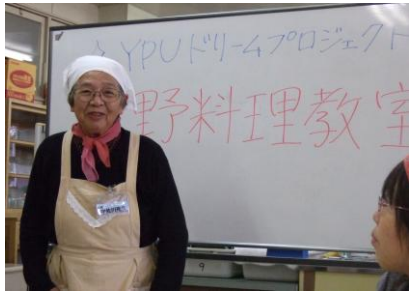 YPUドリームプロジェクト
野料理教室